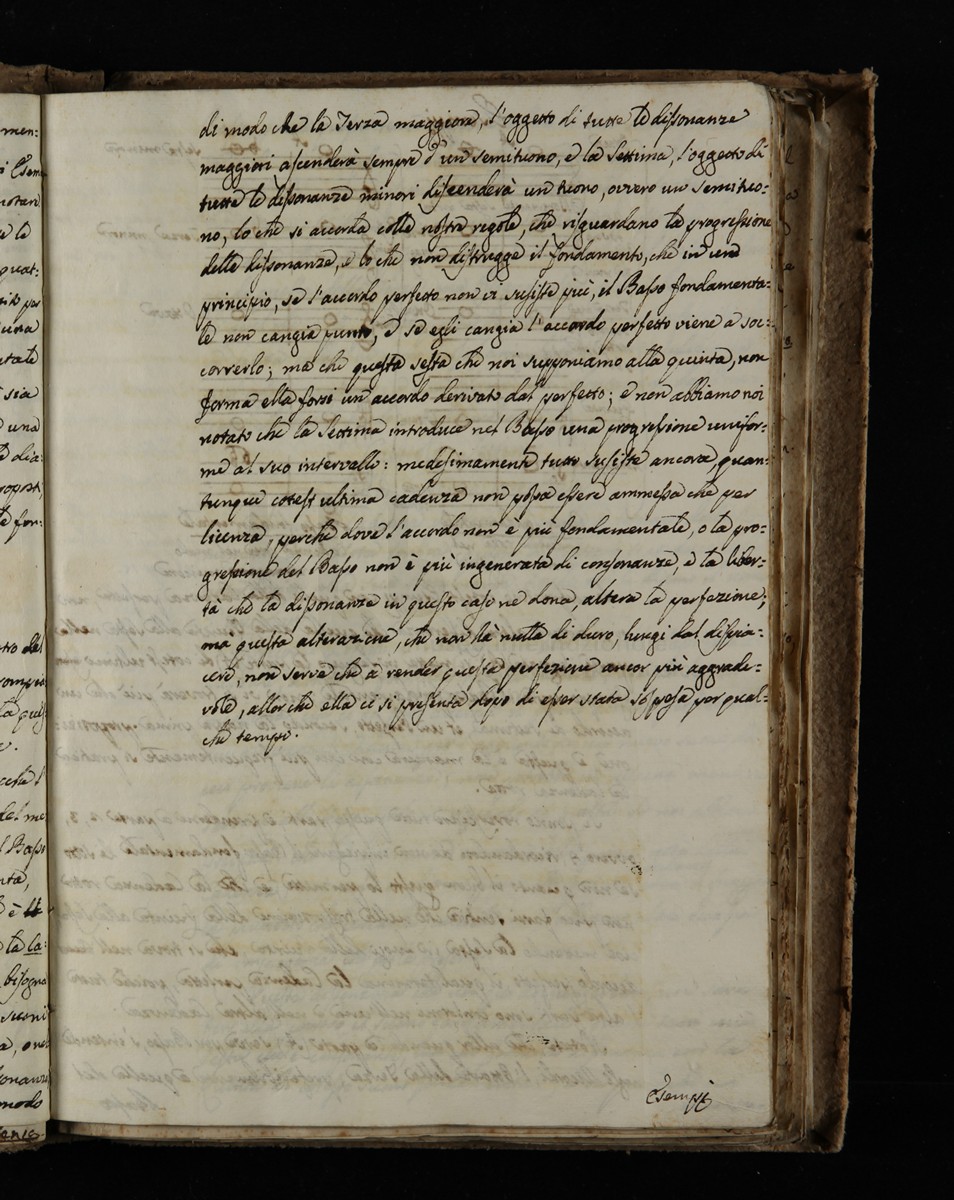 di modo che la Terza maggiore, l'oggetto di tutte le dissonanze
maggiori ascenderà sempre d'un semituono, e la Settima, l'oggetto di
tutte le dissonanze minori discenderà un tuono, ovvero un semituo=
no, lo che si accorda colle nostre regole, che risguardano la progressione
delle dissonanze, e lo che non distrugge il fondamento, che in un
principio, se l'accordo perfetto non vi susiste più, il Basso fondamenta=
le non cangia punto, e se egli cangia l'accordo perfetto viene a soc=
correrlo; ma che questa sesta che noi supponiamo alla quinta, non
forma ella forsi un accordo derivato dal perfetto; e non abbiamo noi
notato che la Settima introduce nel Basso una progressione unifor=
me al suo intervallo: medesimamente tutto susiste ancora, quan=
tunque cotest'ultima cadenza non possa essere ammessa che per
licenza, perchè dove l'accordo non è più fondamentale, o la pro=
gressione del Basso non è più ingenerata di consonanze, e la liber=
tà che la dissonanze in questo caso ne dona, altera la perfezione;
ma questa alterazione, che non hà nulla di duro, lungi dal dispia=
cere, non serve che a render questa perfezione ancor più aggrade=
vole, allor che ella ci si presenta dopo di esser stata sospesa per qual=
che tempo.
Esempj